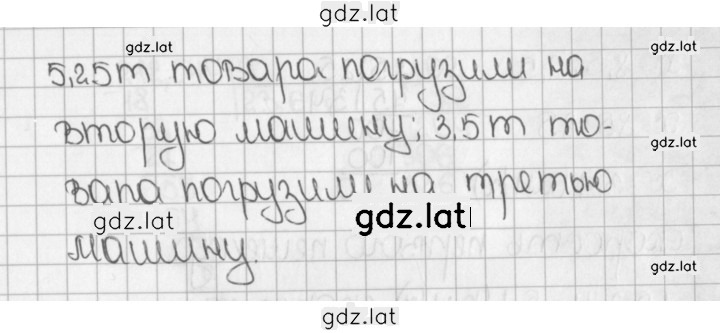 gdz.lat
gdz.lat gdz.lat
5,25т товара погрузили на
вторую машину; 3,5т то-
gdz.lat
вара погрузили на третью
gdz.lat gdz.lat
машину.
gdz.lat
gdz.lat